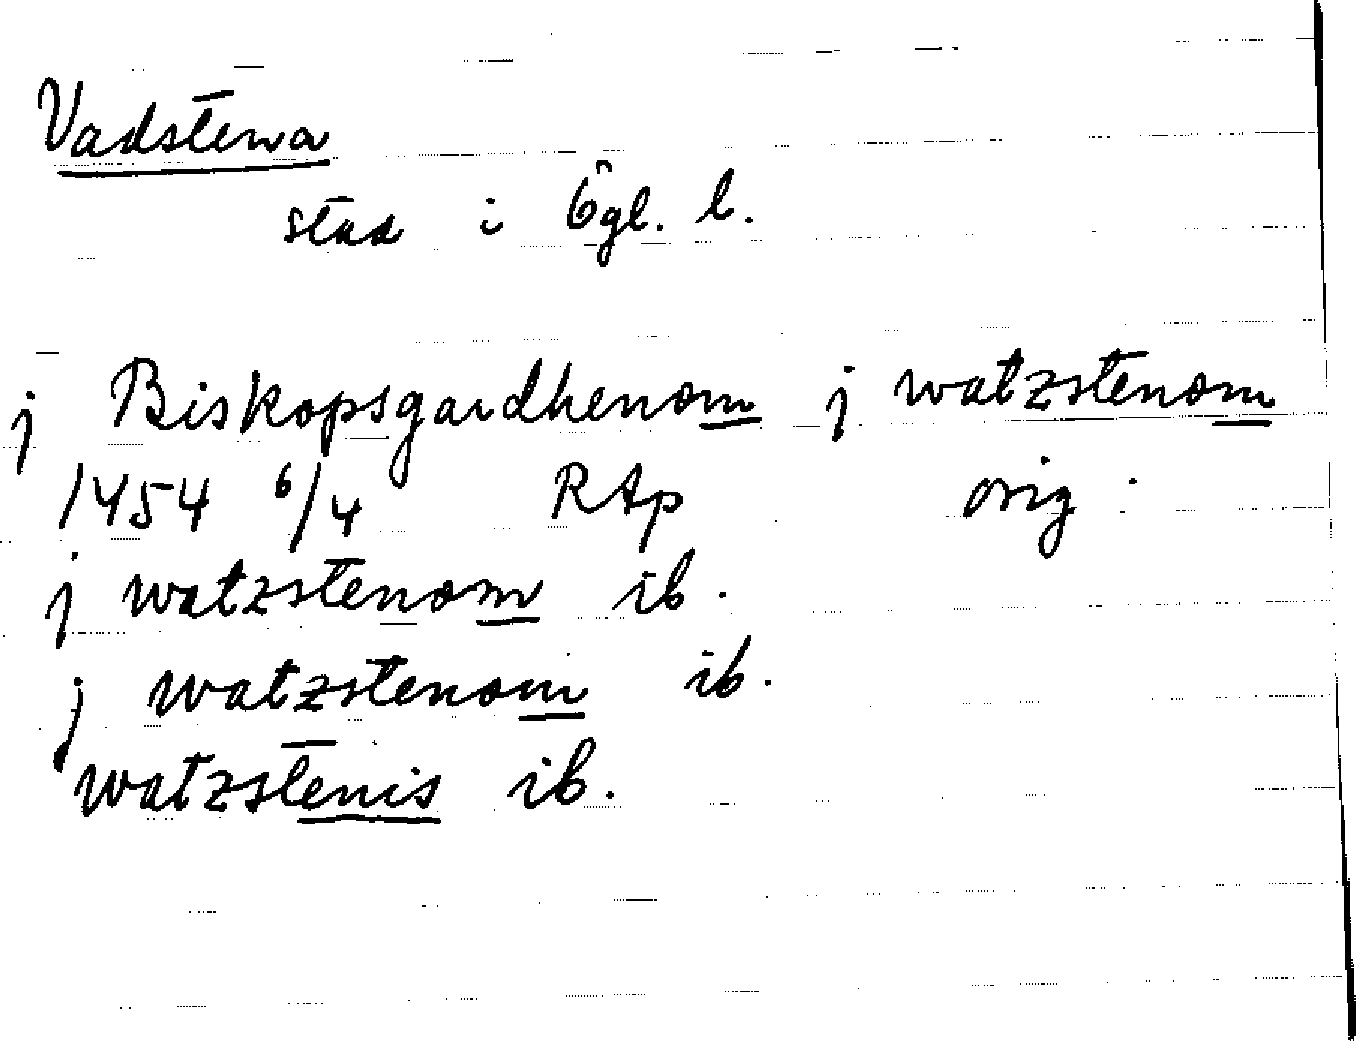 Vadstena
stad i Ögl. l.
j Biskopsgardhenom j watzstenom
1454 6/4 RAp orig.
j watzstenom ib.
j watzstenom ib.
watzstenis ib.